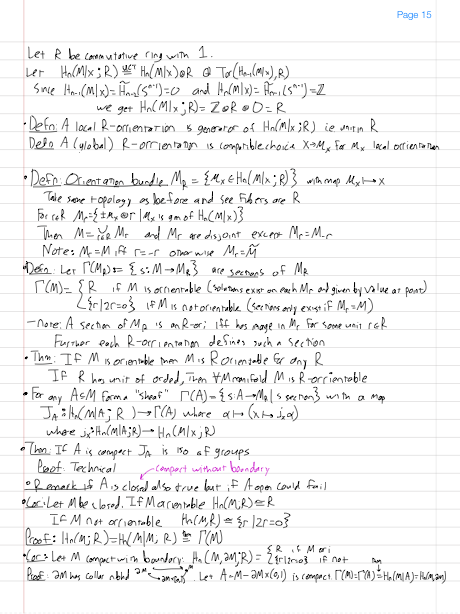 Page 15
Let R be commutative ring with 1.
Let Hn(M|x; R) ≅ Hn(M|x)⊗R ⊕ Tor(Hn-1(M|x), R)
Since Hn-1(M|x) = H̃n-2(Sⁿ⁻¹) = 0 and Hn(M|x) = H̃n-1(Sⁿ⁻¹) = ℤ
we get Hn(M|x; R) = ℤ⊗R ⊕ 0 = R
• Defn: A local R-orientation is generator of Hn(M|x; R) ie unit in R
Defn A (global) R-orientation is compatible choice x↦μx for μx local orientation
• Defn: Orientation bundle MR = {μx ∈ Hn(M|x; R)} with map μx ↦ x
Take same topology as before and see fibers are R
For r∈R Mr = {±μx⊗r | μx is gen of Hn(M|x)}
Then M = ∪r∈R Mr and Mr are disjoint except Mr = M-r
Note: Mr = M iff r = -r otherwise Mr = M̃
• Defn: Let Γ(MR) := {s: M→MR} are sections of MR
Γ(M) = { R if M is orientable (solutions exist on each Mr and given by value at point)
{r|2r=0} if M is not orientable (sections only exist if Mr = M)
- note: A section of MR is an R-or: iff has image in Mr for some unit r∈R
Further each R-orrientation defines such a section
• Thm: If M is orientable then M is R orientable for any R
If R has unit of order 2, Then ∀ manifold M is R-orrientable
• For any A⊆M form a "sheaf" Γ(A) = {s: A→MR | s section} with a map
JA: Hn(M|A; R) → Γ(A) where α ↦ (x ↦ jx α)
where jx: Hn(M|A; R) → Hn(M|x; R)
• Thm: If A is compact JA is iso of groups
Proof: Technical
compact without boundary
• Remark if A is closed also true but if A open could fail
• Cor: Let M be closed. If M orientable Hn(M; R) ≅ R
If M not orrientable Hn(M, R) ≅ {r | 2r=0}
Proof: Hn(M; R) = Hn(M|M; R) ≅ Γ(M)
• Cor: Let M compact with boundary: Hn(M, ∂M; R) = { R if M ori
{r|2r=0} if not
Proof: ∂M has collar nbhd Let A = M - ∂M×[0,1) is compact. Γ(M) = Γ(A) = Hn(M|A) = Hn(M, ∂M)